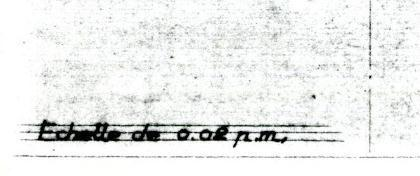 Echelle de 0.02 p.m.